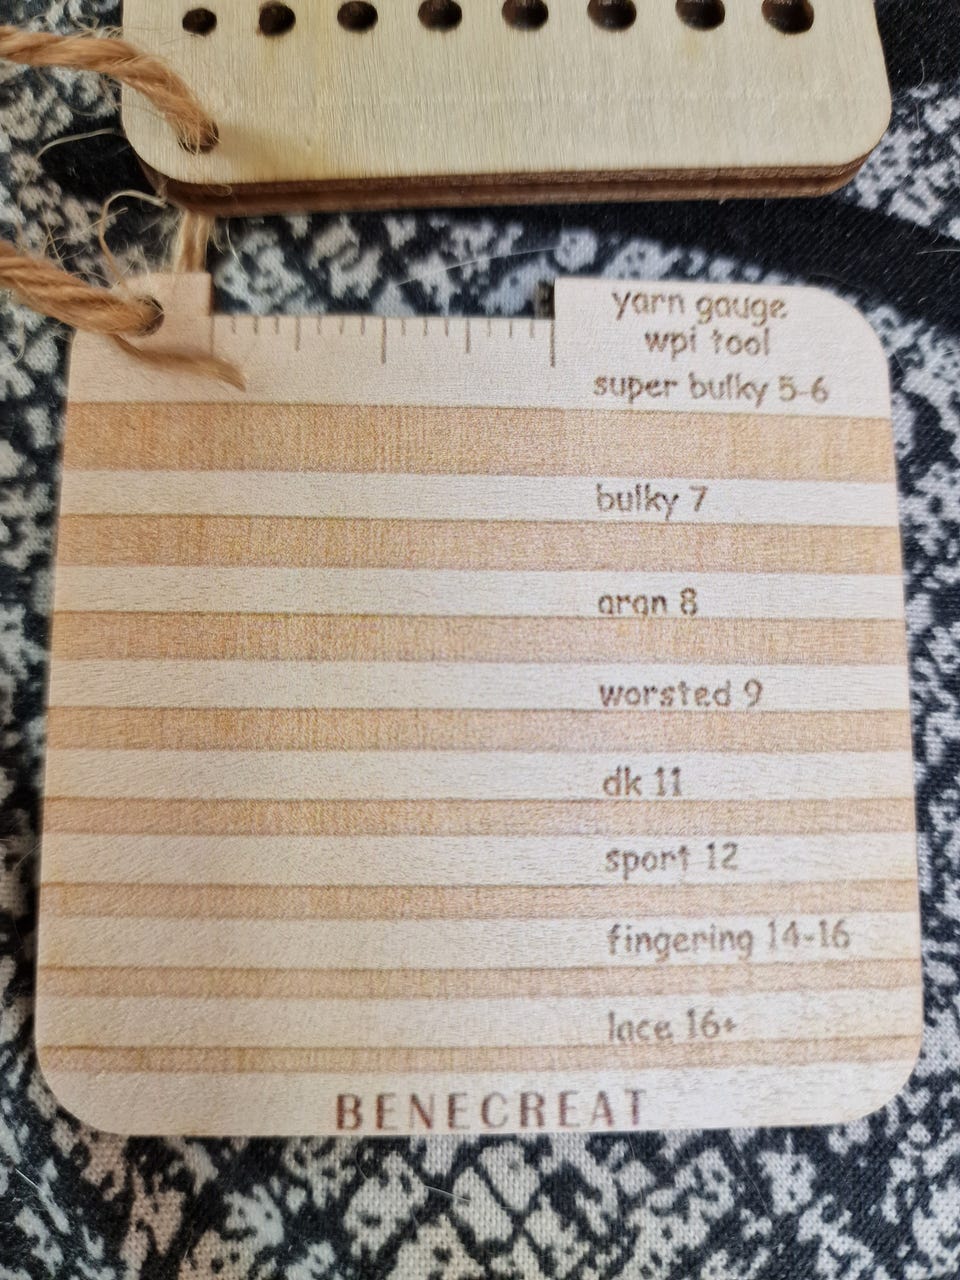 yarn gauge
wpi tool
super bulky 5-6
bulky 7
aran 8
worsted 9
dk 11
sport 12
fingering 14-16
lace 16+
BENECREAT